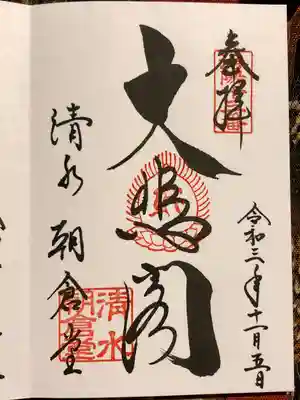 奉拝
令和三年十一月五日
大悲閣
清水 朝倉堂
清水
朝倉堂